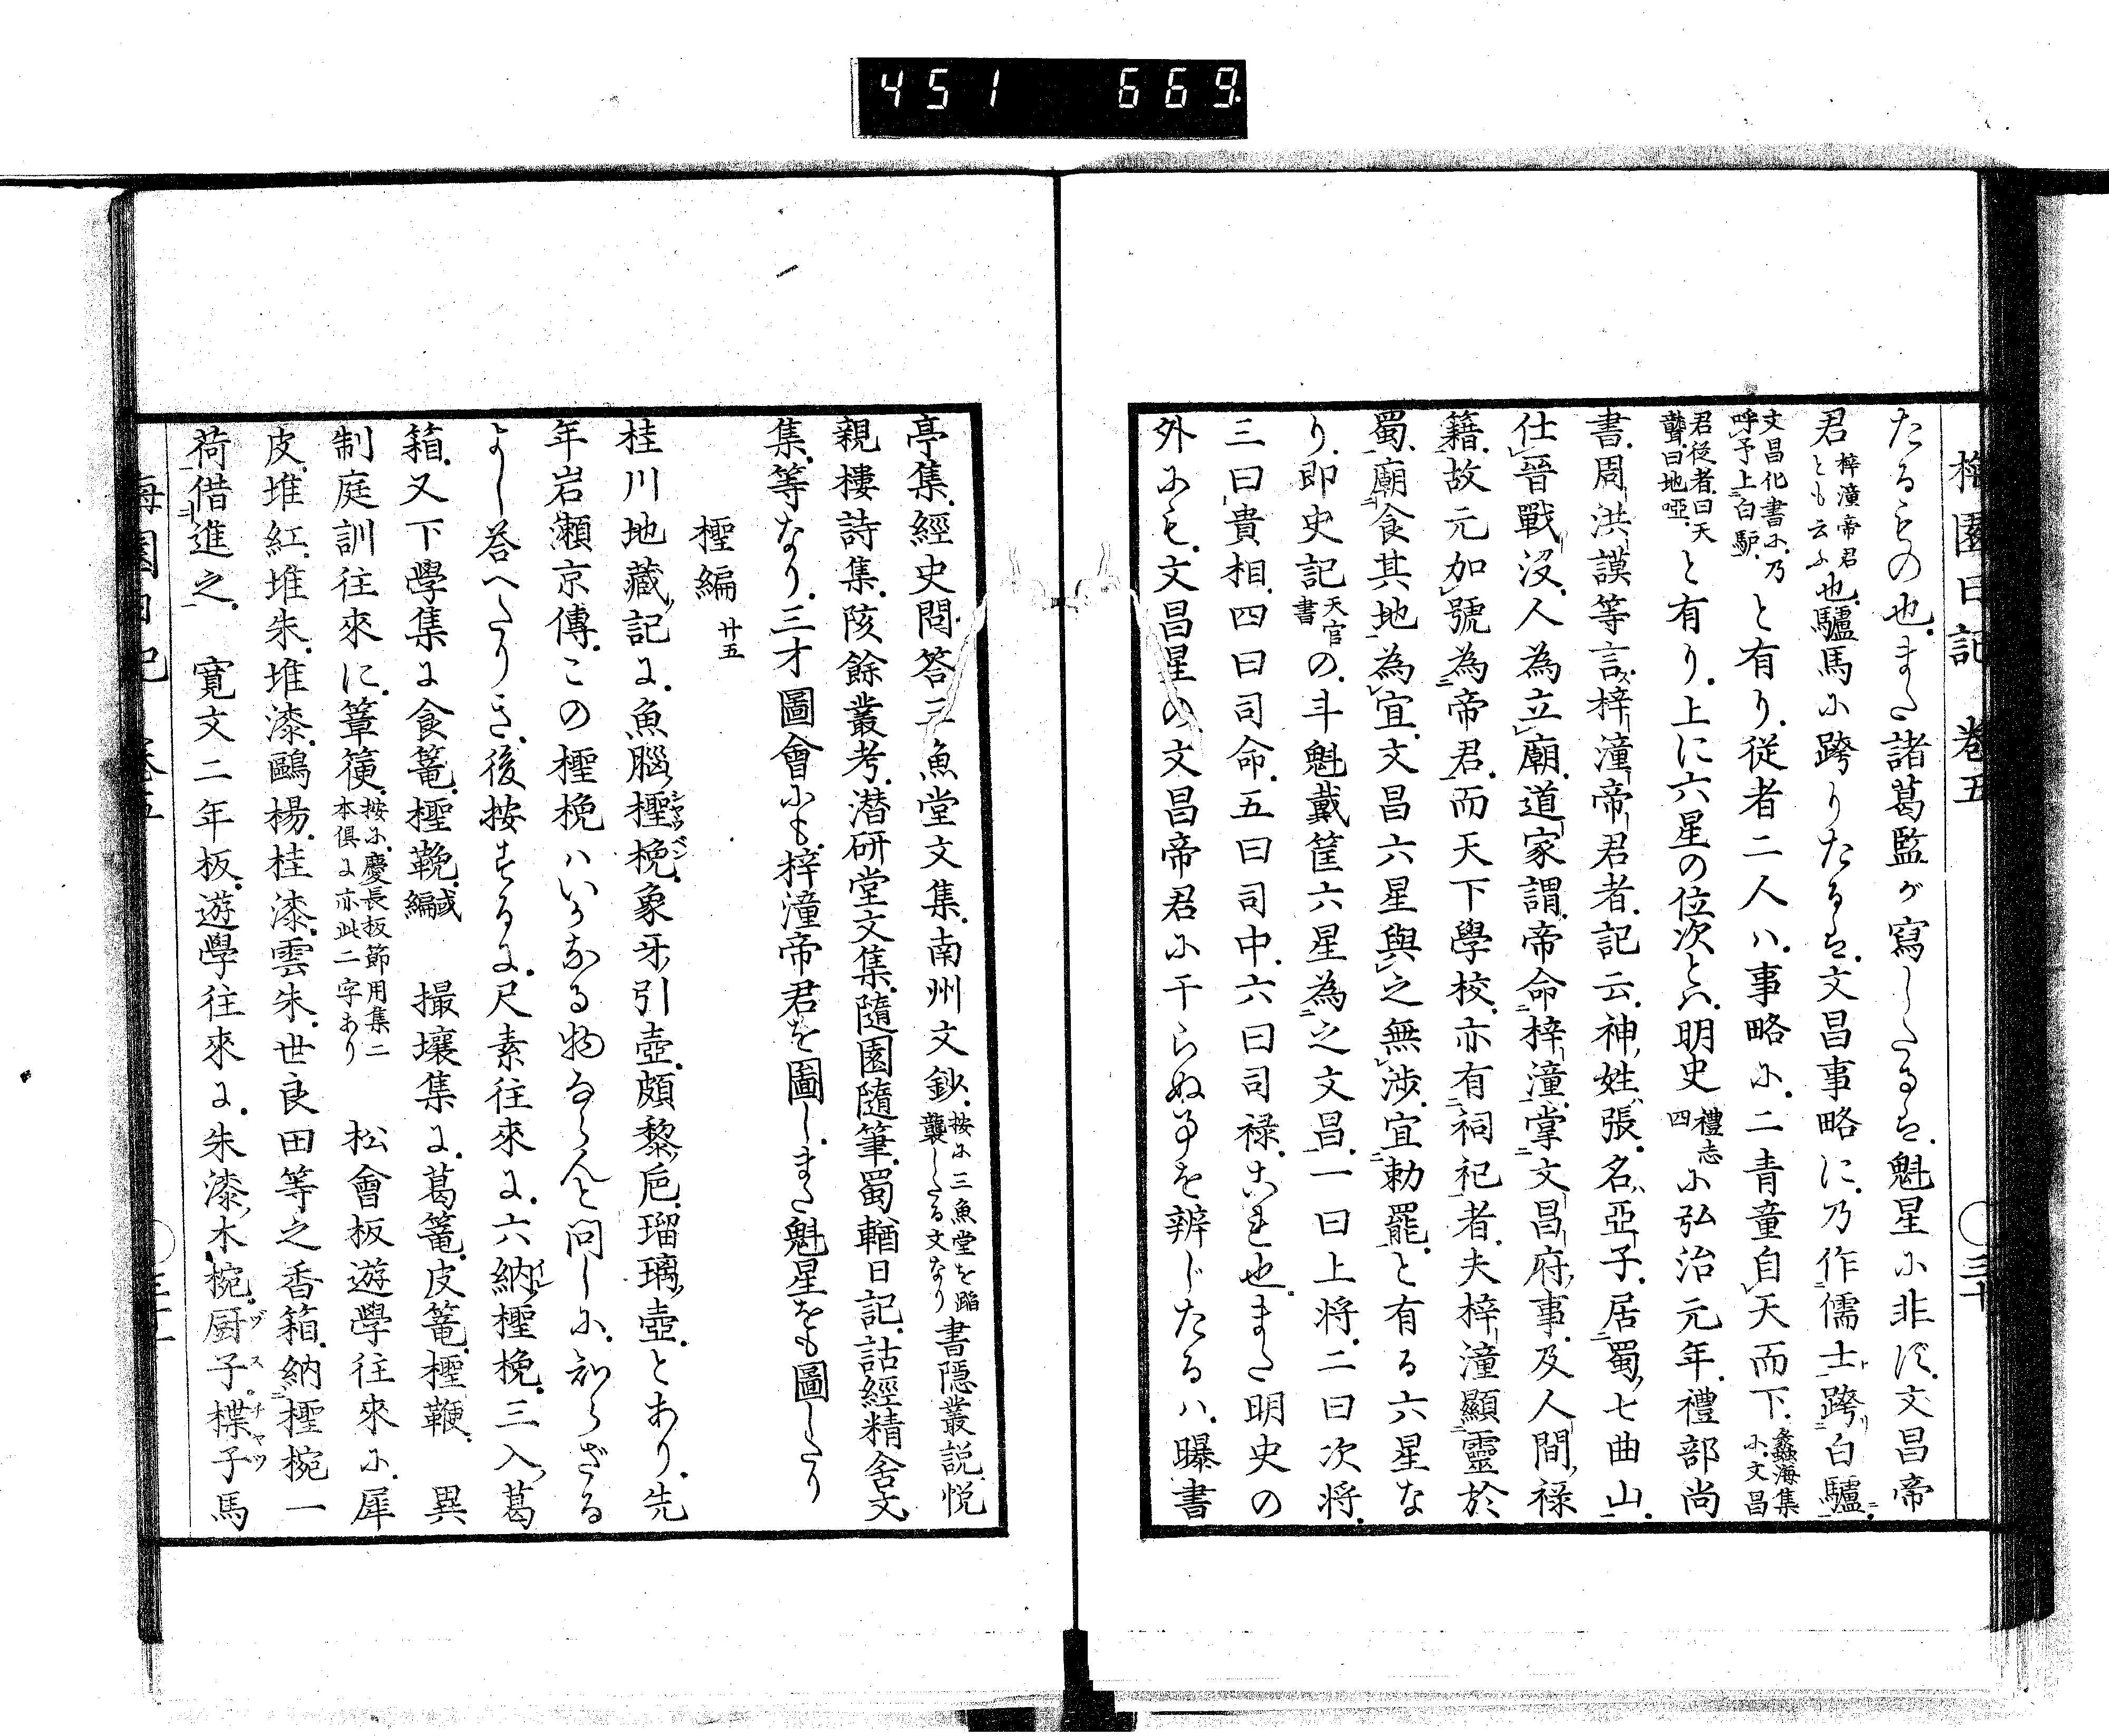 451 669
梅園日記 巻五 ○三十
たるもの也。また諸葛監が寫したるは。魁星に非ず。文昌帝
君梓潼帝君とも云ふ也。驢馬に跨りたるは。文昌事略に。乃作儒士跨白驢。
文昌化書に。乃呼予上白馿。と有り。従者二人ハ。事略に。二青童自天而下。蠡海集に。文昌
君従者。曰天聾。曰地啞。と有り。上に六星の位次とハ。明史禮志四に弘治元年。禮部尚
書。周洪謨等言。梓潼帝君者。記云。神姓張。名亞子。居蜀七曲山。
仕晉戰沒。人為立廟。道家謂。帝命梓潼。掌文昌府事。及人間禄
籍。故元加號為帝君。而天下學校。亦有祠祀者。夫梓潼顯靈於
蜀。廟食其地為宜。文昌六星與之無渉。宜勅罷。と有る六星な
り。即史記天官書の。斗魁戴筐六星為之文昌。一曰上将。二曰次将。
三曰貴相。四曰司命。五曰司中。六曰司禄。これ也。また明史の
外にも。文昌星の文昌帝君に干らぬ事を辨じたるハ。曝書
亭集。經史問答。三魚堂文集。南州文鈔。按に三魚堂を蹈襲したる文なり書隠叢説。悦
親樓詩集。陔餘叢考。潜研堂文集。隨園隨筆。蜀輶日記。詁經精舎文
集。等なり。三才圖會にも。梓潼帝君を圖し。また魁星をも圖したり
樫編 廿五
桂川地藏記に。魚腦樫梚。象牙引壺。頗黎巵。瑠璃壺。とあり。先
年岩瀬京傳。この樫梚ハいかなる物ならんと問しに。知らざる
よし荅へたりき。後按ずるに。尺素往來に。六納樫梚。三入葛
箱。又下學集に食篭。樫鞔。或編 撮壤集に。葛篭。皮篭。樫鞭。 異
制庭訓往來に。篳篌。按に。慶長板節用集二本倶に亦此二字あり 松會板遊學往來に。犀
皮。堆紅。堆朱。堆漆。鷗楊。桂漆。雲朱。世良田等之香箱。納樫椀一
荷借進之。 寛文二年板。遊學往來に。朱漆木椀。厨子楪子馬
梅園日記 巻五 ○三十一